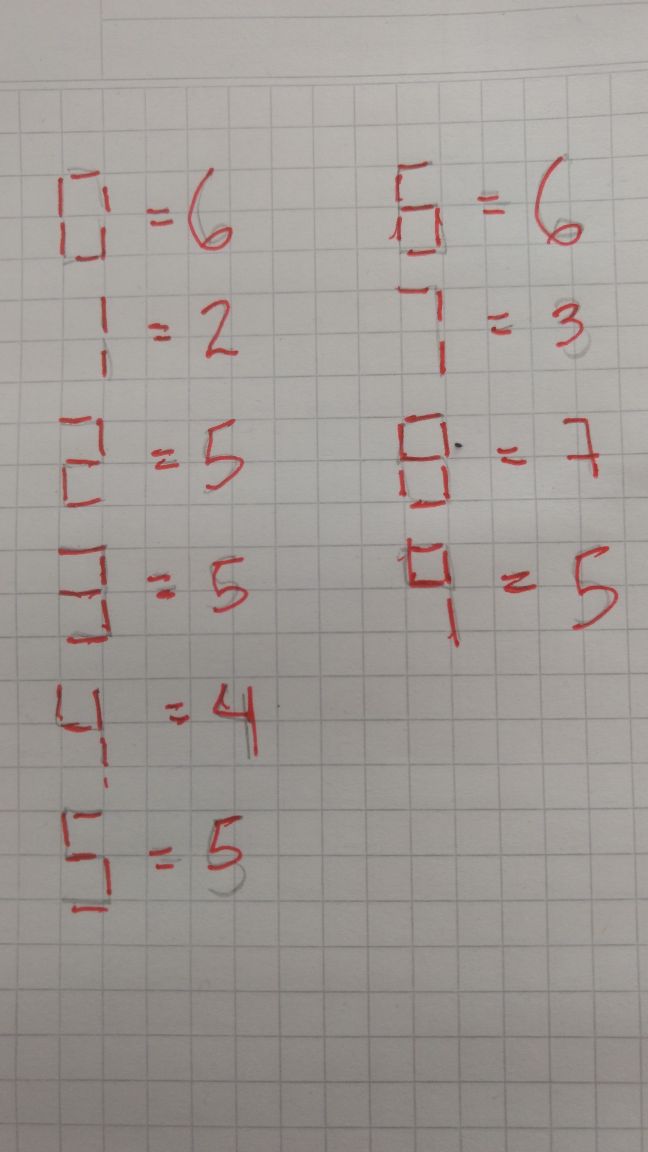 0 = 6
1 = 2
2 = 5
3 = 5
4 = 4
5 = 5
6 = 6
7 = 3
8 = 7
9 = 5